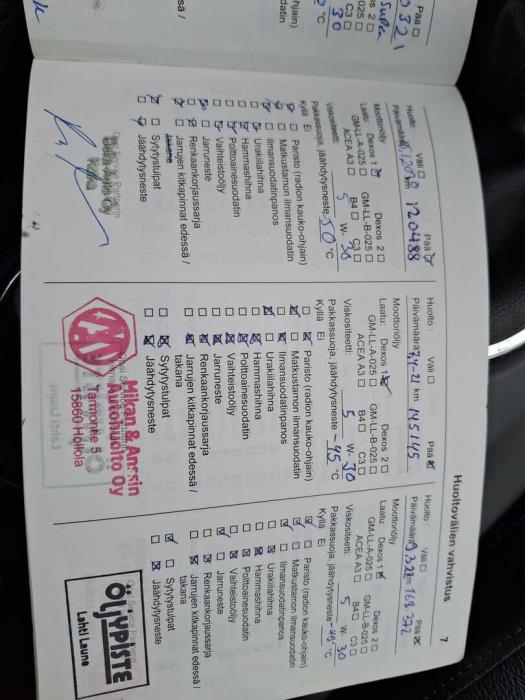 Huoltovälien vahvistus
7
Huolto: Väli ☐ Pää ☒
Päivämäärä km 120488
Moottoriöljy
Laatu: Dexos 1 ☒ Dexos 2 ☐
GM-LL-A-025 ☐ GM-LL-B-025 ☐
ACEA A3 ☐ B4 ☐ C3 ☐
Viskositeetti: 5 W- 30
Pakkassuoja, jäähdytysneste -50 °C
Kyllä Ei
Paristo (radion kauko-ohjain)
Matkustamon ilmansuodatin
Ilmansuodatinpanos
Urakiilahihna
Hammashihna
Polttoainesuodatin
Vaihteistoöljy
Jarruneste
Renkaankorjaussarja
Jarrujen kitkapinnat edessä /
takana
Sytytystulpat
Jäähdytysneste
Huolto: Väli ☐ Pää ☒
Päivämäärä km 145145
Moottoriöljy
Laatu: Dexos 1 ☒ Dexos 2 ☐
GM-LL-A-025 ☐ GM-LL-B-025 ☐
ACEA A3 ☐ B4 ☐ C3 ☐
Viskositeetti: 5 W- 30
Pakkassuoja, jäähdytysneste -45 °C
Kyllä Ei
Paristo (radion kauko-ohjain)
Matkustamon ilmansuodatin
Ilmansuodatinpanos
Urakiilahihna
Hammashihna
Polttoainesuodatin
Vaihteistoöljy
Jarruneste
Renkaankorjaussarja
Jarrujen kitkapinnat edessä /
takana
Sytytystulpat
Jäähdytysneste
Mikan & Anssin
Autohuolto Oy
Tarmontie 5
15860 Hollola
Huolto: Väli ☐ Pää ☒
Päivämäärä km 168272
Moottoriöljy
Laatu: Dexos 1 ☒ Dexos 2 ☐
GM-LL-A-025 ☐ GM-LL-B-025 ☐
ACEA A3 ☐ B4 ☐ C3 ☐
Viskositeetti: 5 W- 30
Pakkassuoja, jäähdytysneste °C
Kyllä Ei
Paristo (radion kauko-ohjain)
Matkustamon ilmansuodatin
Ilmansuodatinpanos
Urakiilahihna
Hammashihna
Polttoainesuodatin
Vaihteistoöljy
Jarruneste
Renkaankorjaussarja
Jarrujen kitkapinnat edessä /
takana
Sytytystulpat
Jäähdytysneste
ÖLJYPISTE
Lahti Laune